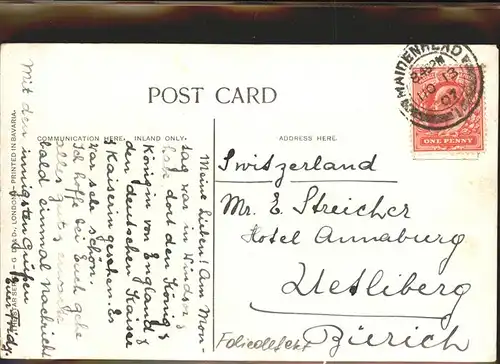 POST CARD
COMMUNICATION HERE.
INLAND ONLY.
ADDRESS HERE.
MAIDENHEAD
NO 13
07
ONE PENNY
Meine Lieben! Am Mon-
tag war in Windsor
hab dort den König &
Königin von England &
den deutschen Kaiser
& Kaiserin gesehen. Es
war sehr schön.
Ich hoffe bei Euch geht
alles gut & erwarte
bald einmal Nachricht
Mit den innigsten Grüßen
Switzerland
Mr. E. Streicher
Hotel Annaburg
Uetliberg
Zürich
LONDON
PRINTED IN BAVARIA.